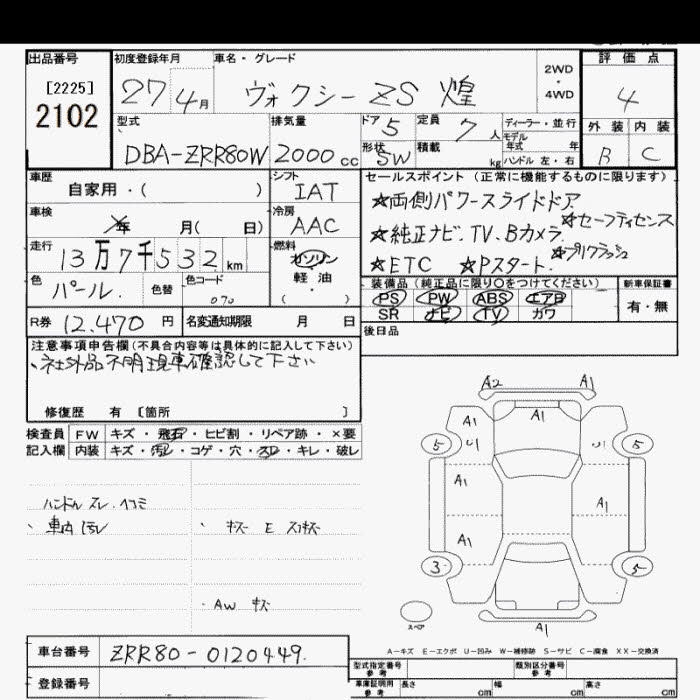 出品番号 初度登録年月 車名・グレード 評価点
[2225] 27 4月 ヴォクシー ZS 煌 2WD ・ 4WD 4
2102
型式 排気量 ドア 5 定員 7 人 ディーラー・並行 外装 内装
モデル 年式 年
DBA-ZRR80W 2000 cc 形状 SW 積載 kg ハンドル 左・右 B C
車歴 自家用・( ) シフト IAT セールスポイント (正常に機能するものに限ります)
☆両側パワースライドドア
車検 年 月( 日) 冷房 AAC ☆セーフティセンス
☆純正ナビ.TV.Bカメラ
走行 13万7千532 km 燃料 ガソリン ☆プリクラッシュ
☆ETC ☆Pスタート.
色 パール. 色替 色コード 070 軽油・ ( )
装備品 (純正品に限り○をつけてください) 新車保証書
PS PW ABS エアB 有・無
R券 12,470 円 名変通知期限 月 日 SR ナビ TV カワ
後日品
注意事項申告欄 (不具合内容等は具体的に記入して下さい)
・社外品不明現車確認して下さい
修復歴 有 [箇所 ]
検査員 FW キズ・飛石・ヒビ割・リペア跡・×要
記入欄 内装 キズ・汚レ・コゲ・穴・スレ・キレ・破レ
ハンドル スレ.ヘコミ
、車内汚レ 、キズ E スリキズ
・AW キズ
A2 A1
A1
5 A1 U U 5
A1 A1
A1
3 5
スペア A1
A-キズ E-エクボ U-凹み W-補修跡 S-サビ C-腐食 XX-交換済
車台番号 ZRR80-0120449.
型式指定番号 参考 類別区分番号 参考
登録番号 車庫証明用 参考 長さ cm 幅 cm 高さ cm